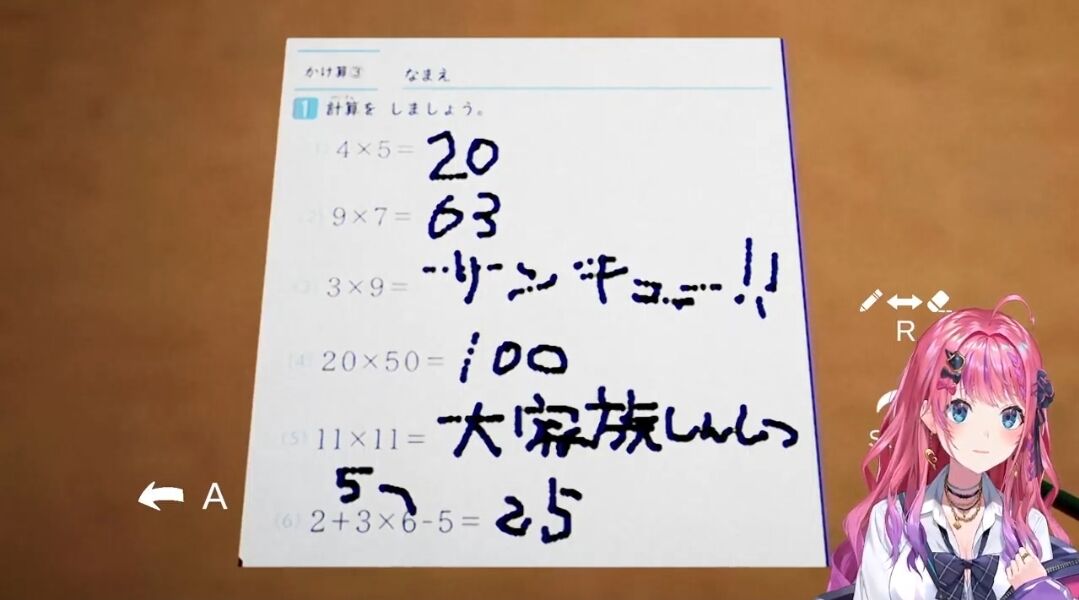 かけ算③ なまえ
1 計算を しましょう。
(1) 4×5= 20
(2) 9×7= 63
(3) 3×9= サンキュー!!
(4) 20×50= 100
(5) 11×11= 大家族しんしつ
5
(6) 2+3×6-5= 25
R
A